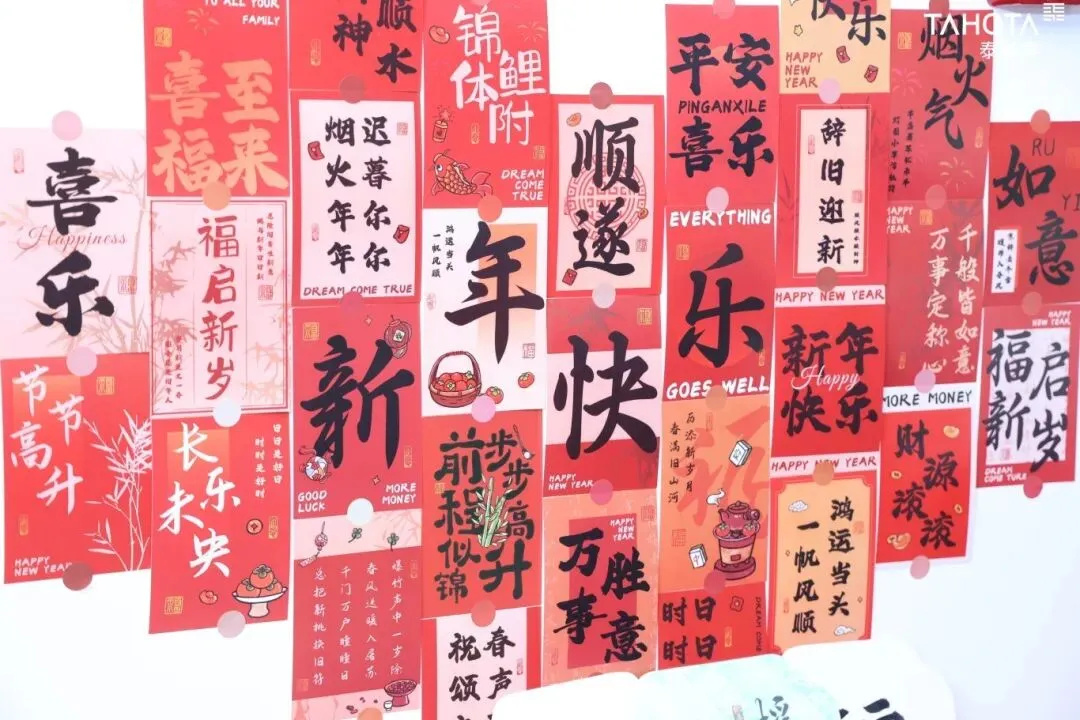 喜
Happiness
乐
节节高升
HAPPY
NEW YEAR
TO ALL YOUR
FAMILY
喜至
福来
福启新岁
长乐
未央
日日是好日
时时是好时
顺
神
水
迟暮尔尔
烟火年年
DREAM COME TRUE
新
GOOD
LUCK
MORE
MONEY
爆竹声中一岁除
春风送暖入屠苏
千门万户曈曈日
总把新桃换旧符
锦鲤
附体
DREAM
COME
TRUE
鸿运当头
一帆风顺
年
步步高升
前程似锦
春声
祝颂
顺
遂
快
HAPPY
NEW YEAR
HAPPY
NEW
YEAR
万事
胜意
平安
PINGANXILE
喜乐
EVERYTHING
乐
GOES WELL
历添新岁月
春满旧山河
日日
时时
DREAM COME
快乐
HAPPY
NEW
YEAR
辞旧迎新
HAPPY NEW YEAR
新年
Happy
快乐
HAPPY NEW YEAR
鸿运当头
一帆风顺
TAHOTA
泰
烟火
气
HAPPY
NEW
YEAR
千般皆如意
万事定称心
MORE MONEY
财源
滚滚
RU
如
YI
意
HAPPY
NEW YEAR
福启
新岁
DREAM
COME TURE